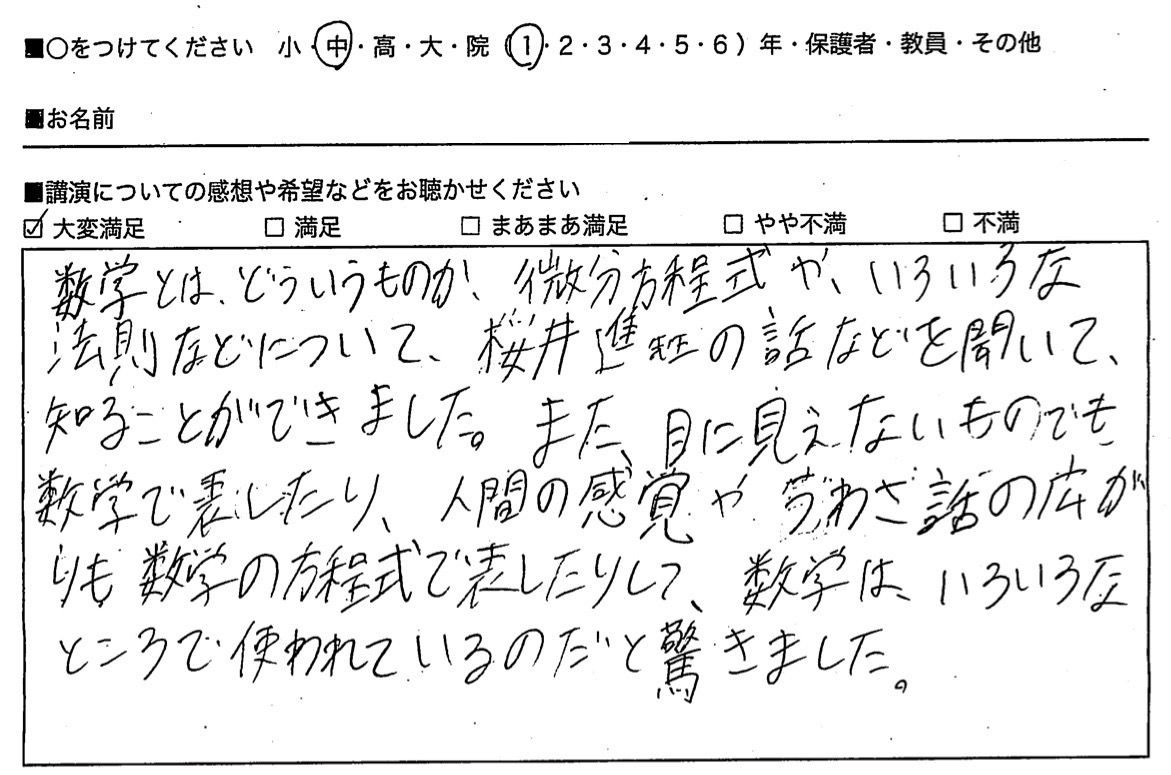 ■○をつけてください 小・中・高・大・院（1・2・3・4・5・6）年・保護者・教員・その他
■お名前
■講演についての感想や希望などをお聴かせください
☑ 大変満足 □ 満足 □ まあまあ満足 □ やや不満 □ 不満
数学とは、どういうものか、微分方程式や、いろいろな
法則などについて、桜井進先生の話などを聞いて、
知ることができました。また、目に見えないものでも
数学で表したり、人間の感覚や うわさ話の広が
りも数学の方程式で表したりして、数学は、いろいろな
ところで使われているのだと驚きました。